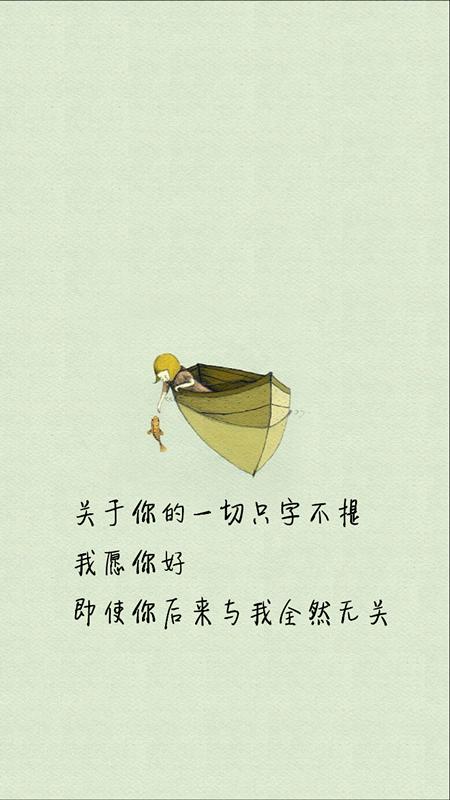 关于你的一切只字不提
我愿你好
即使你后来与我全然无关